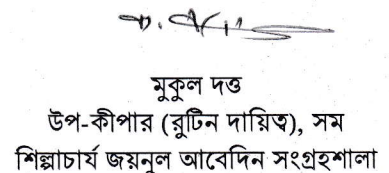 মুকুল দত্ত
উপ-কীপার (রুটিন দায়িত্ব), সম
শিল্পাচার্য জয়নুল আবেদিন সংগ্রহশালা